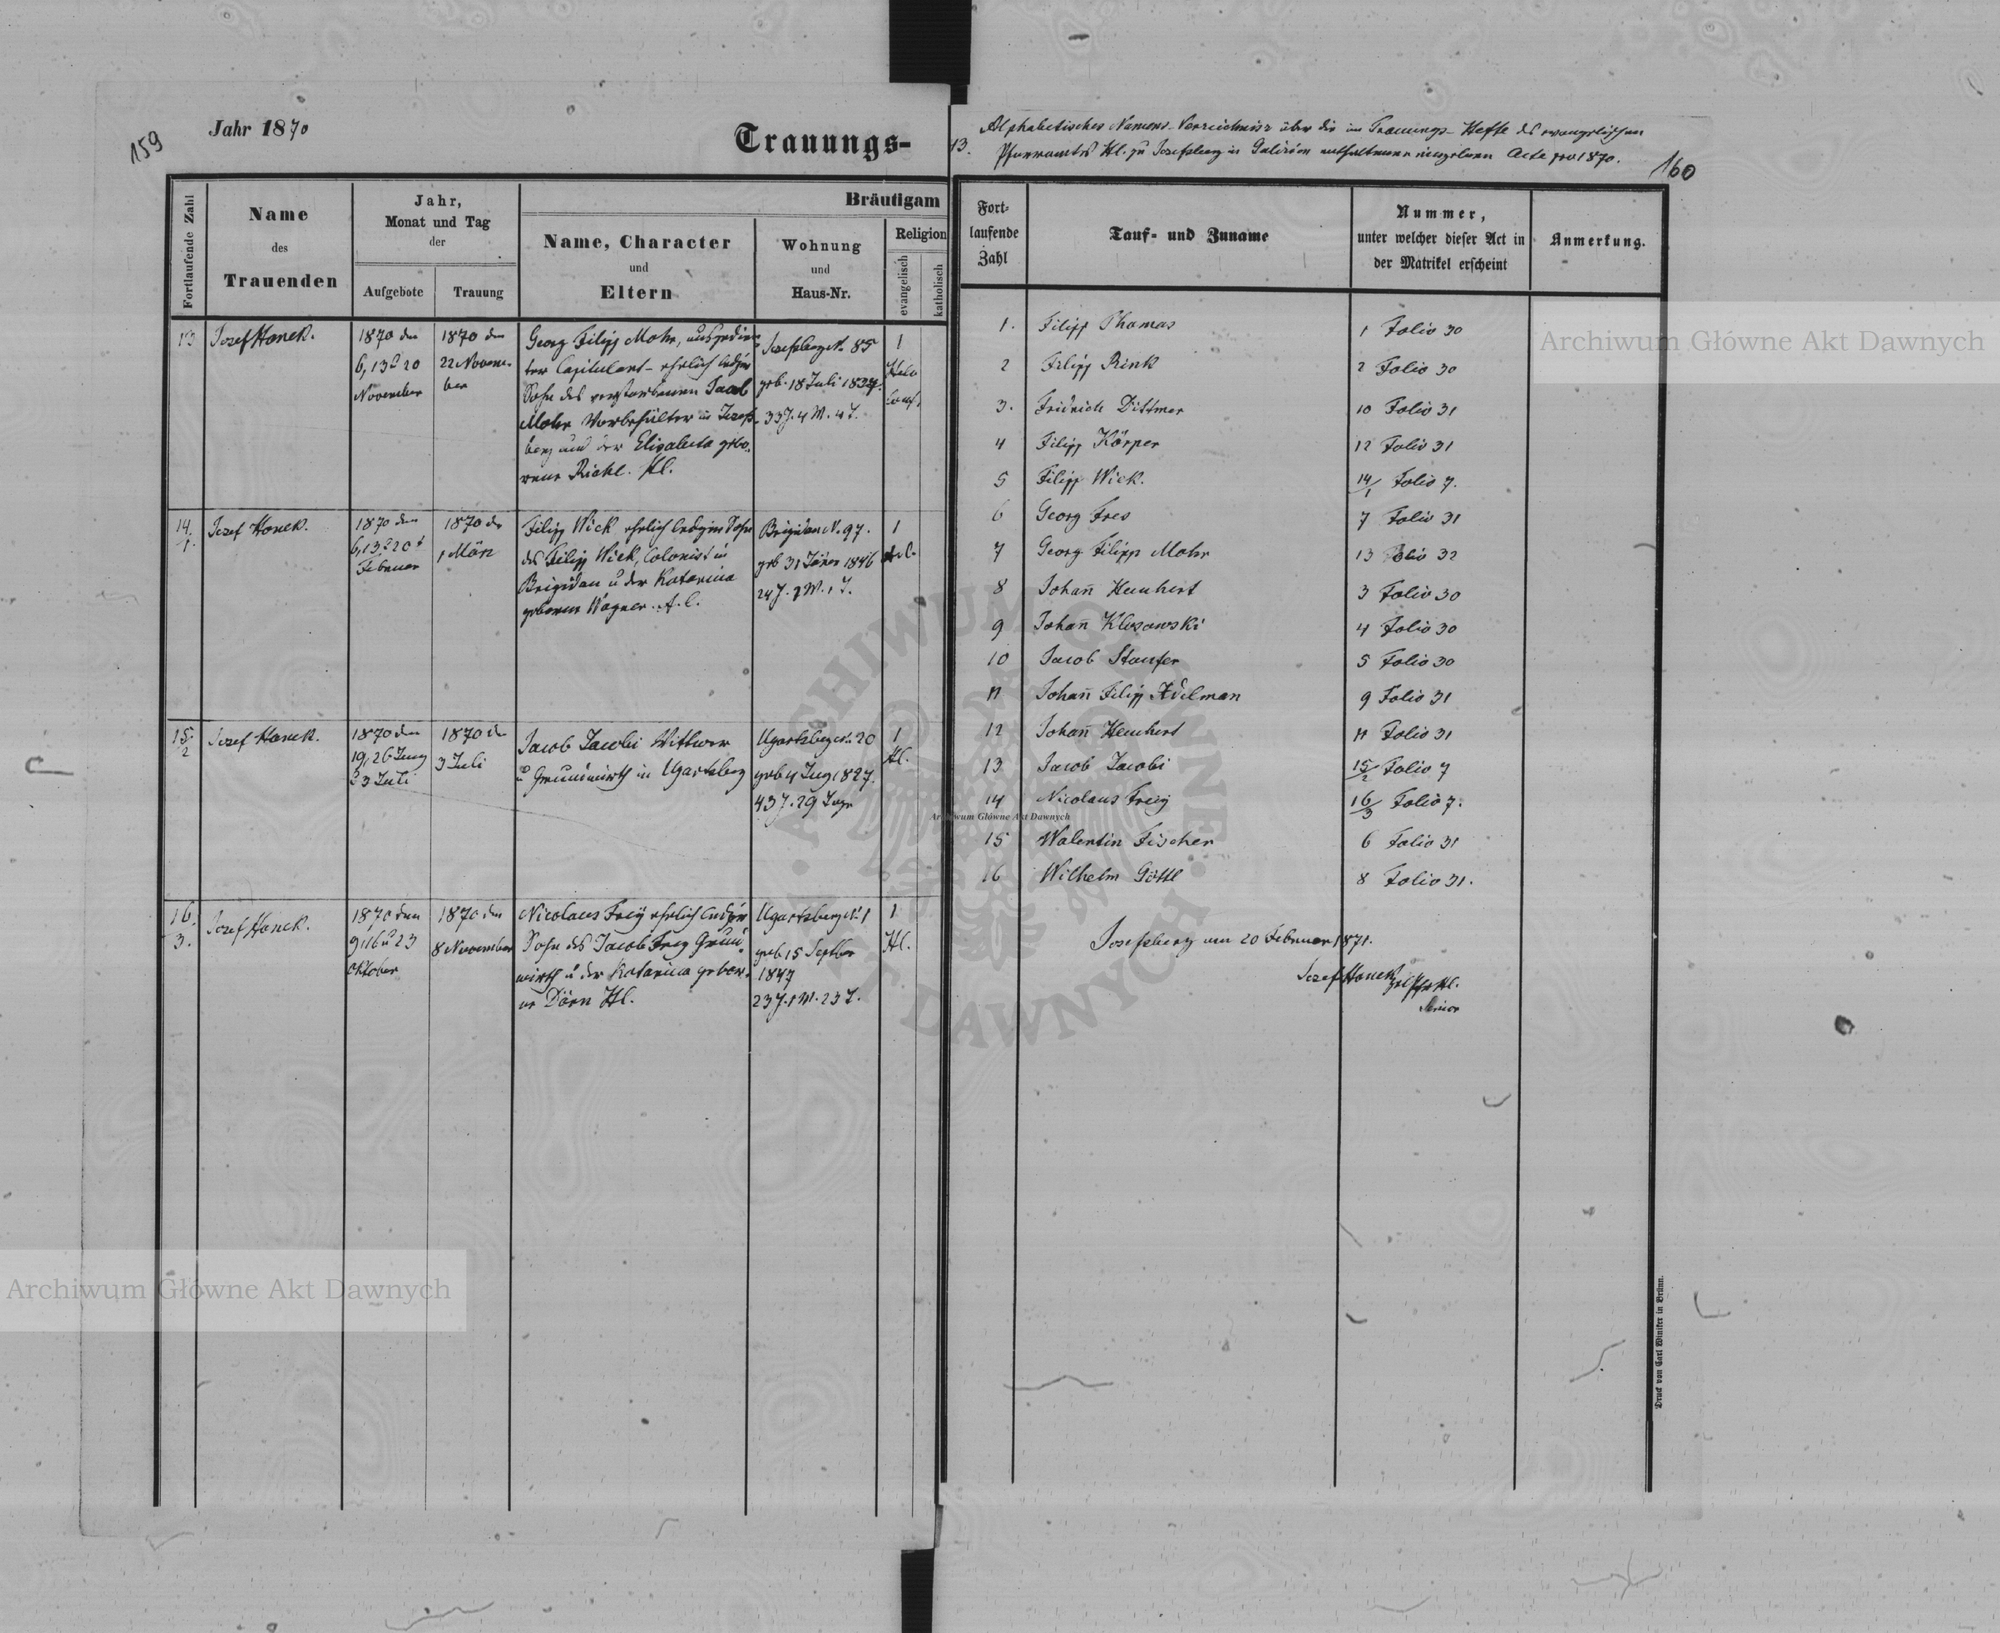 159
Jahr 1870
Trauungs-
Fortlaufende Zahl
Name
des
Trauenden
Jahr,
Monat und Tag
der
Aufgebote
Trauung
Bräutigam
Name, Character
und
Eltern
Wohnung
und
Haus-Nr.
Religion
evangelisch
katholisch
13
Jozef Hanek.
1870 den
6, 13 u 20
November
1870 den
22 Novem-
ber
Georg Filipp Mohr, ausgedien-
ter Capitulant – ehrlich lediger
Sohn des verstorbenen Jacob
Mohr Vorbehälter in Josefs-
berg und der Elisabeta gebo-
rene Richl. Hl.
Josefsberg N. 85
geb. 18 Juli 1837.
33 J. 4 M. 4 T.
1
Helv.
Conf.
14/1.
Jozef Hanek.
1870 den
6, 13 u 20t
Februar
1870 den
1 März
Filipp Wick ehrlich lediger Sohn
des Filipp Wick, Colonist in
Brigidau u der Katarina
geborene Wagner. A. C.
Brigidau N. 97.
geb 31 Jäner 1846
24 J. 1 T.
1
A.C.
15/2
Jozef Hanek.
1870 den
19, 26 Juny
u 3 Juli
1870 den
3 Juli
Jacob Jacobi Wittwer
u Grundwirth in Ugartsberg
Ugartsberg N. 20
geb 4 Juny 1827.
43 J. 29 Tage
1
Hl.
16/3.
Jozef Hanek.
1870 den
9, 16 u 23
Oktober
1870 den
8 November
Nicolaus Frey ehrlich lediger
Sohn des Jacob Frey Grund-
wirth u der Katarina gebore-
ne Dörn Hl.
Ugartsberg N. 1
geb 15 Septber
1847
23 J. 1 M. 23 T.
1
Hl.
13.
Alphabetisches Namens-Verzeichniss über die im Trauungs-Hefte des evangelischen
Pfarramtes Hl. zu Josefsberg in Galizien enthaltenen Acte pro 1870.
160
Fort-
laufende
Zahl
Tauf- und Zuname
Nummer,
unter welcher dieser Act in
der Matrikel erscheint
Anmerkung.
1. Filipp Thomas 1 Folio 30
2 Filipp Rink 2 Folio 30
3. Fridrich Dittmer 10 Folio 31
4 Filipp Körper 12 Folio 31
5 Filipp Wick. 14/1 Folio 7.
6 Georg Fres 7 Folio 31
7 Georg Filipp Mohr 13 Folio 32
8 Johañ Heuchert 3 Folio 30
9 Johañ Klosowski 4 Folio 30
10 Jacob Staufer 5 Folio 30
11 Johañ Filipp Adelman 9 Folio 31
12 Johañ Heuchert 11 Folio 31
13 Jacob Jacobi 15/2 Folio 7
14 Nicolaus Frey 16/3 Folio 7.
15 Walentin Fischer 6 Folio 31
16 Wilhelm Göttl 8 Folio 31.
Josefsberg am 20 Februar 1871.
Jozef Hanek
Senior
Druck von Carl Winiker in Brünn.
Archiwum Główne Akt Dawnych
Archiwum Główne Akt Dawnych
Archiwum Główne Akt Dawnych